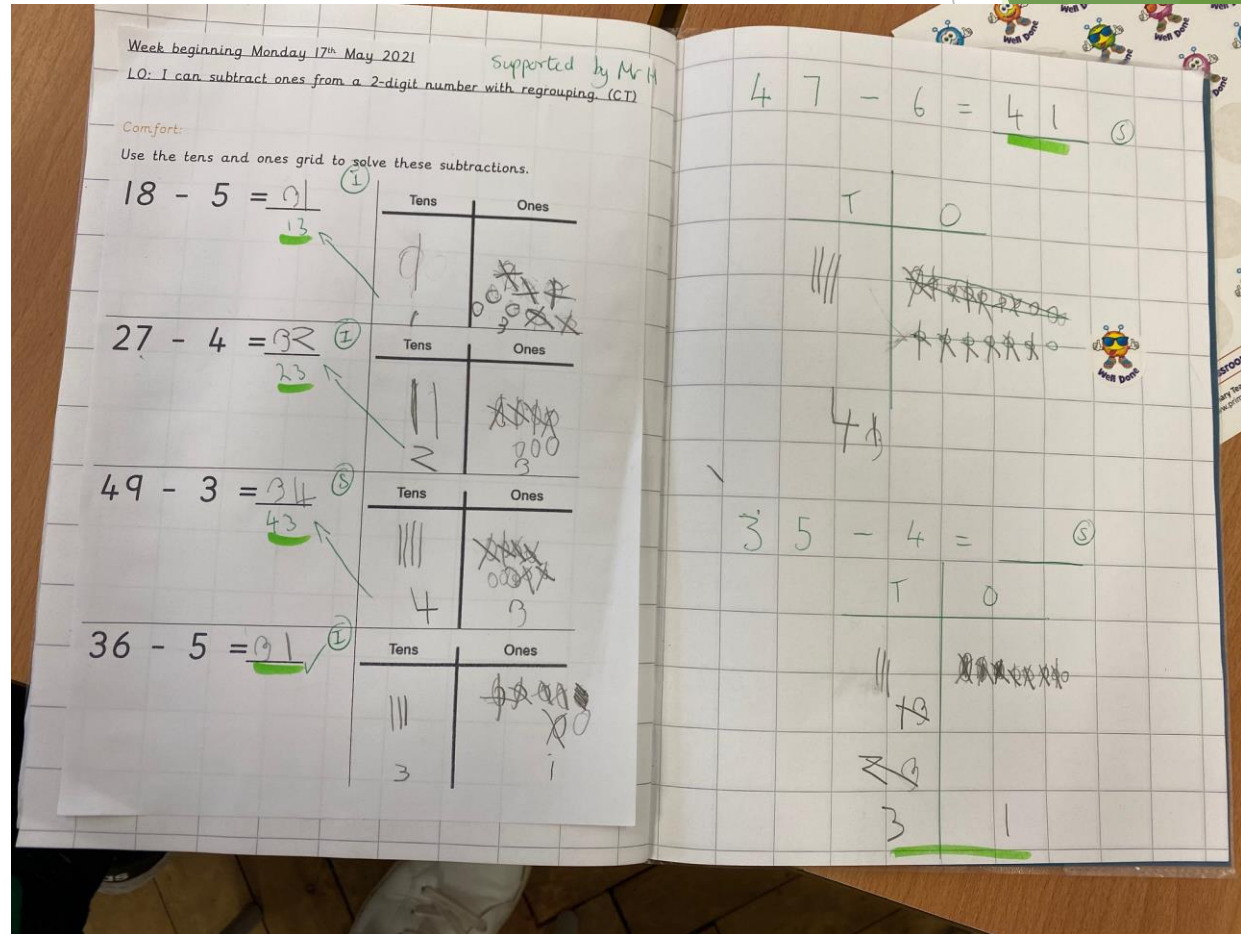 Week beginning Monday 17th May 2021
Supported by Mr H
LO: I can subtract ones from a 2-digit number with regrouping. (CT)
Comfort:
Use the tens and ones grid to solve these subtractions.
18 - 5 = 31 I
13
Tens Ones
1 3
27 - 4 = 32 I
23
Tens Ones
2 3
49 - 3 = 34 S
43
Tens Ones
4 3
36 - 5 = 31 I
Tens Ones
3 1
47 - 6 = 41 S
T O
4
35 - 4 = ___ S
T O
3 1
Well Done
Well Done
Well Done
Well Done